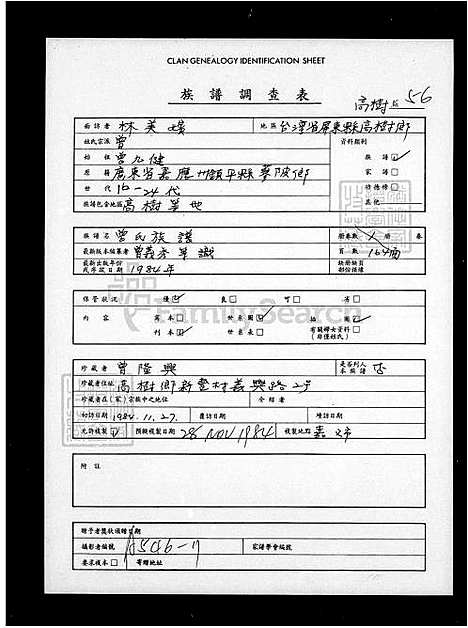 CLAN GENEALOGY IDENTIFICATION SHEET
族譜調查表
高樹 56
訪問者 林美 地區 台灣省屏東縣高樹鄉
姓氏宗派 曾 資料類別
始祖 曾九健 族譜
原籍 廣東省嘉應州鎮平縣 家譜
世代 16-24代
族譜包含地區 高樹等地 其他
族譜名 曾氏族譜 冊卷數 1 冊 卷
最新版本編纂者 曾義 頁數 164面
最新出版年份或序跋日期 1984年 缺冊缺頁部份損壞
保管狀況 優 良 可 劣
內容 寫本 世系圖 插圖
刊本 世系表 有關婦女資料(非僅姓氏)
珍藏者 曾隆興 是否列入本族譜 否
珍藏者住址 高樹鄉新豐村義興路2号
珍藏者在(家)宗族中之地位 介紹者
初訪日期 1984.11.27. 覆訪日期 導訪日期
允許複製 預擬複製日期 28 NOV 1984 複製地點 嘉
附註
贈予者獎狀頒贈日期
攝影者編號 A5046-17 家譜學會編號
要求複本 寄贈地址
FamilySearch